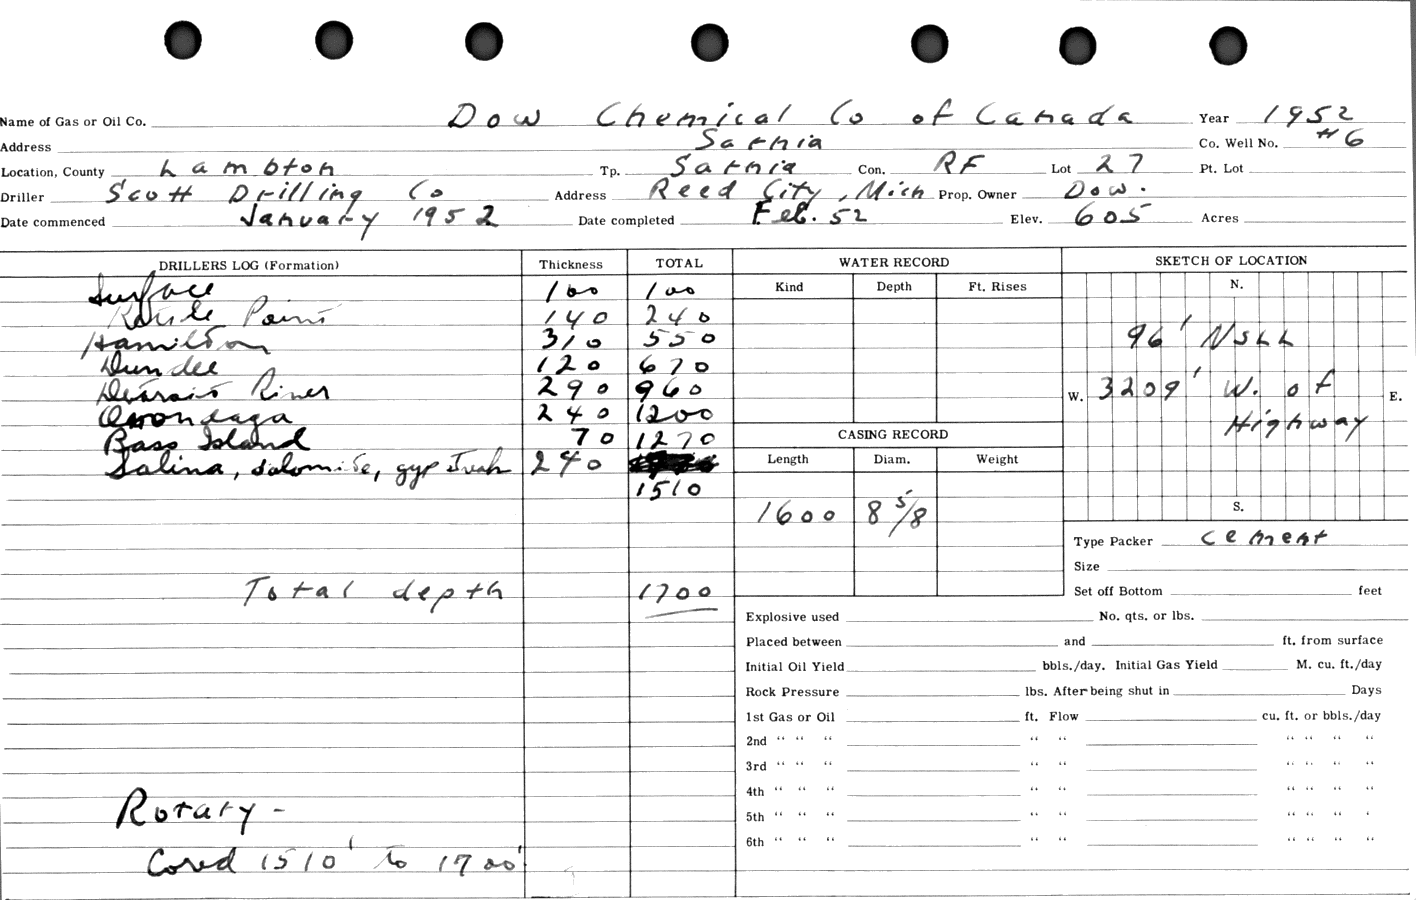 Name of Gas or Oil Co. Dow Chemical Co of Canada Year 1952
Address Sarnia Co. Well No. #6
Location, County Lambton Tp. Sarnia Con. RF Lot 27 Pt. Lot
Driller Scott Drilling Co Address Reed City, Mich Prop. Owner Dow.
Date commenced January 1952 Date completed Feb. 52 Elev. 605 Acres
DRILLERS LOG (Formation) Thickness TOTAL
Surface 100 100
Kettle Point 140 240
Hamilton 310 550
Dundee 120 670
Detroit River 290 960
Onondaga 240 1200
Bass Island 70 1270
Salina, dolomite, gyp 240
1510
Total depth 1700
Rotary -
Cored 1510' to 1700'
WATER RECORD
Kind Depth Ft. Rises
CASING RECORD
Length Diam. Weight
1600 8 5/8
SKETCH OF LOCATION
N.
96' NSLL
W. 3209' W. of E.
Highway
S.
Type Packer Cement
Size
Set off Bottom feet
Explosive used No. qts. or lbs.
Placed between and ft. from surface
Initial Oil Yield bbls./day. Initial Gas Yield M. cu. ft./day
Rock Pressure lbs. After being shut in Days
1st Gas or Oil ft. Flow cu. ft. or bbls./day
2nd " " " " " " " " "
3rd " " " " " " " " "
4th " " " " " " " " "
5th " " " " " " " " '
6th " " " " " " " " "